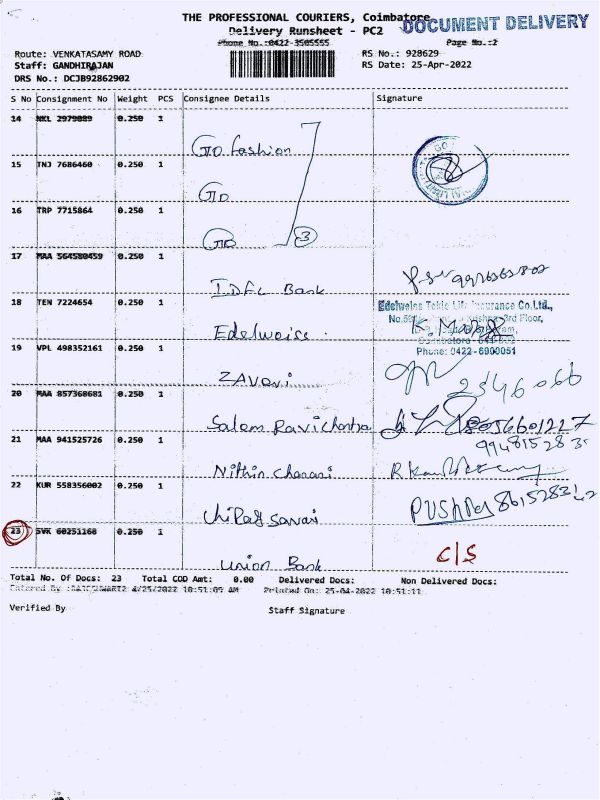 THE PROFESSIONAL COURIERS, Coimbatore
DOCUMENT DELIVERY
Delivery Runsheet - PC2
Phone No.:0422-3505555
Page No.:2
Route: VENKATASAMY ROAD
RS No.: 928629
Staff: GANDHIRAJAN
RS Date: 25-Apr-2022
DRS No.: DCJB92862902
S No Consignment No Weight PCS Consignee Details Signature
14 NKL 2979089 0.250 1
GO fashion
15 TNJ 7686460 0.250 1
GO
16 TRP 7715864 0.250 1
GO 3
17 MAA 564580459 0.250 1
IDFC Bank
18 TEN 7224654 0.250 1
Edelweiss Tokio Life Insurance Co.Ltd.,
3rd Floor,
Edelweiss.
Phone: 0422-6900051
19 VPL 498352161 0.250 1
ZAVeri
2346066
20 MAA 857368681 0.250 1
Salem Ravichandra
8056601227
21 MAA 941525726 0.250 1
Nithin Charari
22 KUR 558356002 0.250 1
Chirag Savari
23 SVK 60251168 0.250 1
C/S
Union Bank
Total No. Of Docs: 23 Total COD Amt: 0.00 Delivered Docs: Non Delivered Docs:
4/25/2022 10:51:09 AM Printed On: 25-04-2022 10:51:11
Verified By
Staff Signature